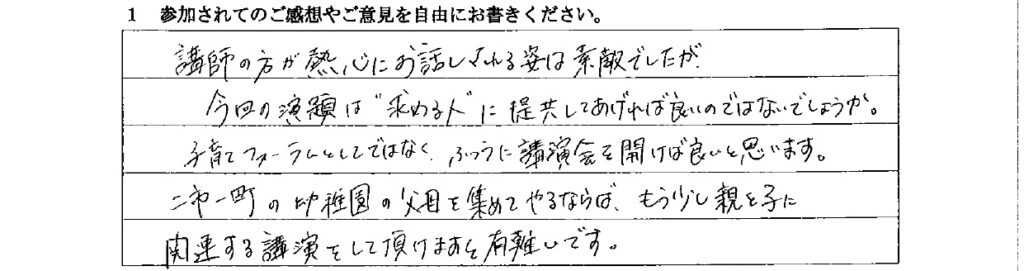 1 参加されてのご感想やご意見を自由にお書きください。
講師の方が熱心にお話しされる姿は素敵でしたが、
今回の演題は"求める人"に提共してあげれば良いのではないでしょうか。
子育てフォーラムとしてではなく、ふつうに講演会を開けば良いと思います。
二市一町の幼稚園の父母を集めてやるならば、もう少し親と子に
関連する講演をして頂けますと有難いです。